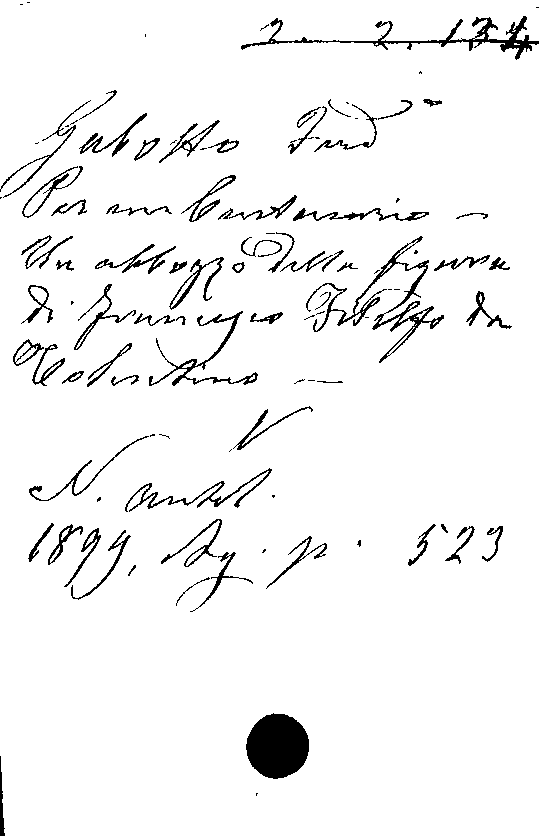 2. 2. 134
Gabotto Ferdº
Per un Centenario —
Un abbozzo della figura
di Francesco Filelfo da
Tolentino —
N. antol.
1899, Ag. p. 523